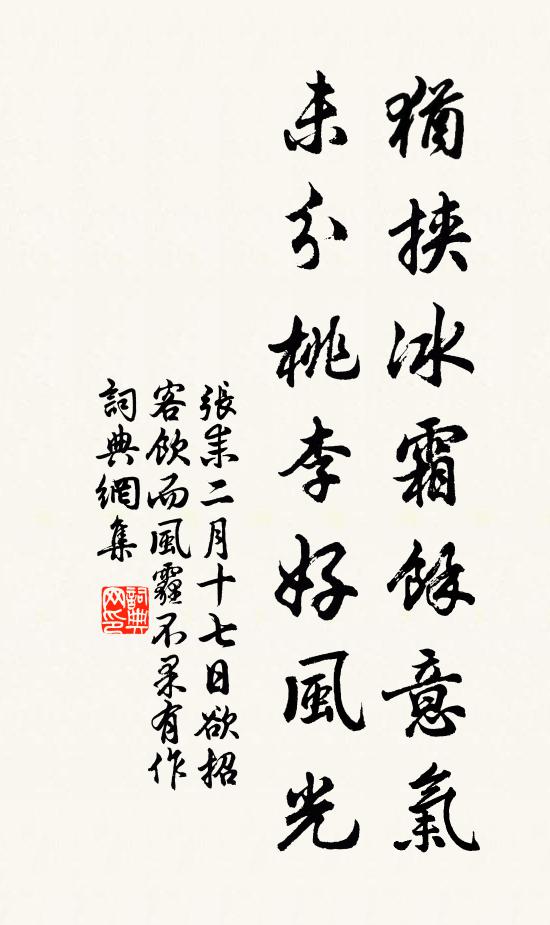 猶挾冰霜餘意氣
未分桃李好風光
張耒二月十七日欲招
客飲而風霾不果有作
詞典網集
詞典网印